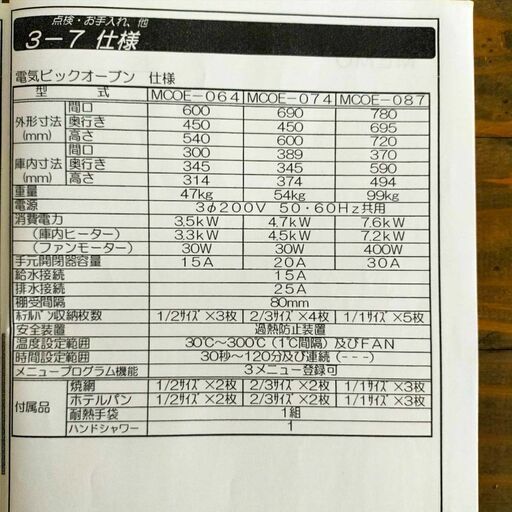 点検・お手入れ、他
3－7 仕様
電気ビックオーブン 仕様
型 式 MCOE－064 MCOE－074 MCOE－087
外形寸法 (mm) 間口 600 690 780
奥行き 450 450 695
高さ 540 600 720
庫内寸法 (mm) 間口 300 389 370
奥行き 345 345 590
高さ 314 374 494
重量 47kg 54kg 99kg
電源 3φ200V 50・60Hz共用
消費電力 3.5kW 4.7kW 7.6kW
（庫内ヒーター） 3.3kW 4.5kW 7.2kW
（ファンモーター） 30W 30W 400W
手元開閉器容量 15A 20A 30A
給水接続 15A
排水接続 25A
棚受間隔 80mm
ﾎﾃﾙﾊﾟﾝ収納枚数 1/2ｻｲｽﾞ×3枚 2/3ｻｲｽﾞ×4枚 1/1ｻｲｽﾞ×5枚
安全装置 過熱防止装置
温度設定範囲 30℃～300℃（1℃間隔）及びFAN
時間設定範囲 30秒～120分及び連続（－－－）
メニュープログラム機能 3メニュー登録可
付属品 焼網 1/2ｻｲｽﾞ×2枚 2/3ｻｲｽﾞ×2枚 1/1ｻｲｽﾞ×3枚
ホテルパン 1/2ｻｲｽﾞ×2枚 2/3ｻｲｽﾞ×2枚 1/1ｻｲｽﾞ×3枚
耐熱手袋 1組
ハンドシャワー 1